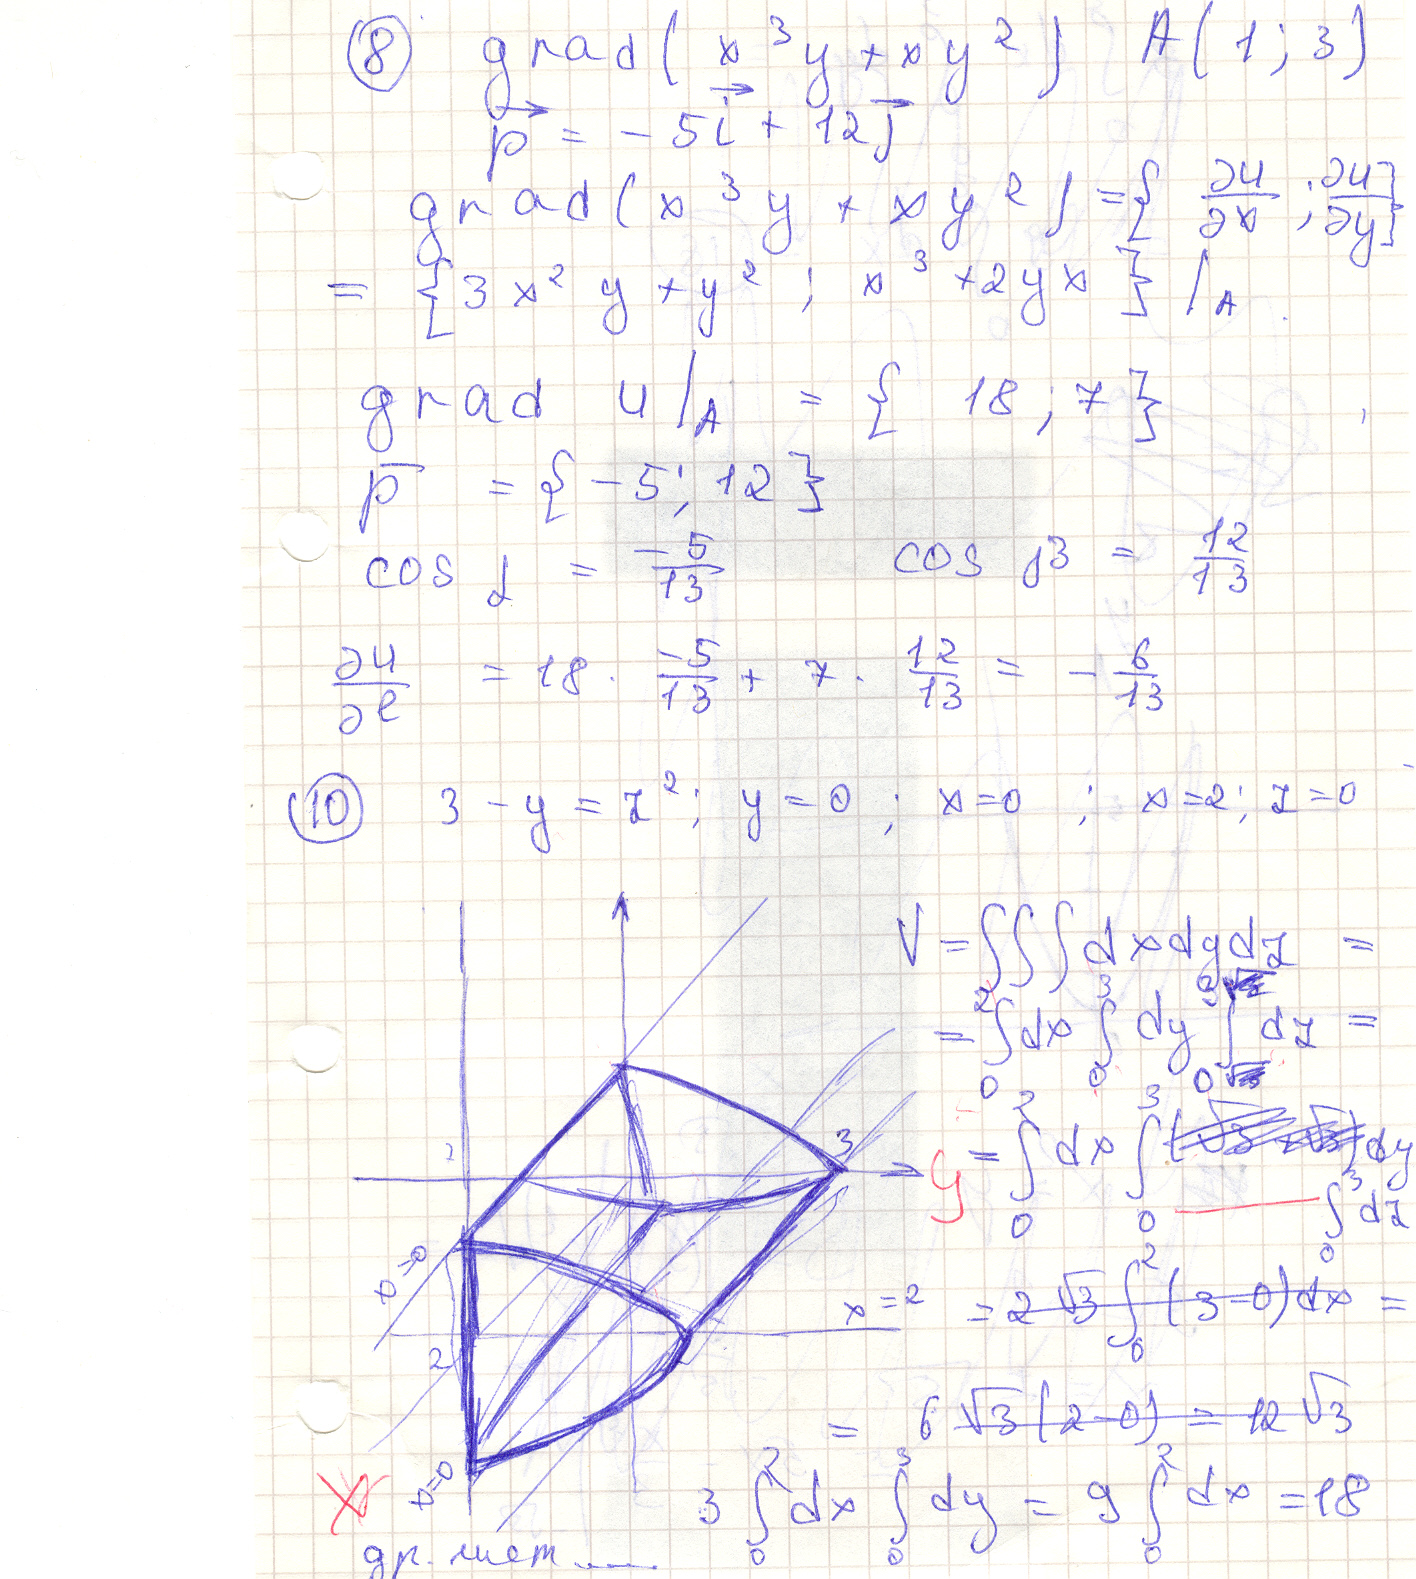 ⑧ grad(x³y + xy²) A(1; 3)
p⃗ = -5i⃗ + 12j⃗
grad(x³y + xy²) = {∂u/∂x ; ∂u/∂y}
= {3x²y + y² ; x³ + 2yx} |_A
grad u |_A = {18 ; 7}
p̄ = {-5 ; 12}
cos α = -5/13 cos β = 12/13
∂u/∂e = 18 · -5/13 + 7 · 12/13 = -6/13
⑩ 3 - y = z² ; y = 0 ; x = 0 ; x = 2 ; z = 0
V = ∫∫∫ dx dy dz =
= ∫₀² dx ∫₀³ dy ∫₀³ dz =
= ∫₀² dx ∫₀³ (√3 - √3) dy
∫₀³ dz
= 2√3 ∫₀² (3-0) dx =
= 6√3 (2-0) = 12√3
3 ∫₀² dx ∫₀³ dy = 9 ∫₀² dx = 18
3
y
x=0
x=2
2
x=0
x
др. лист